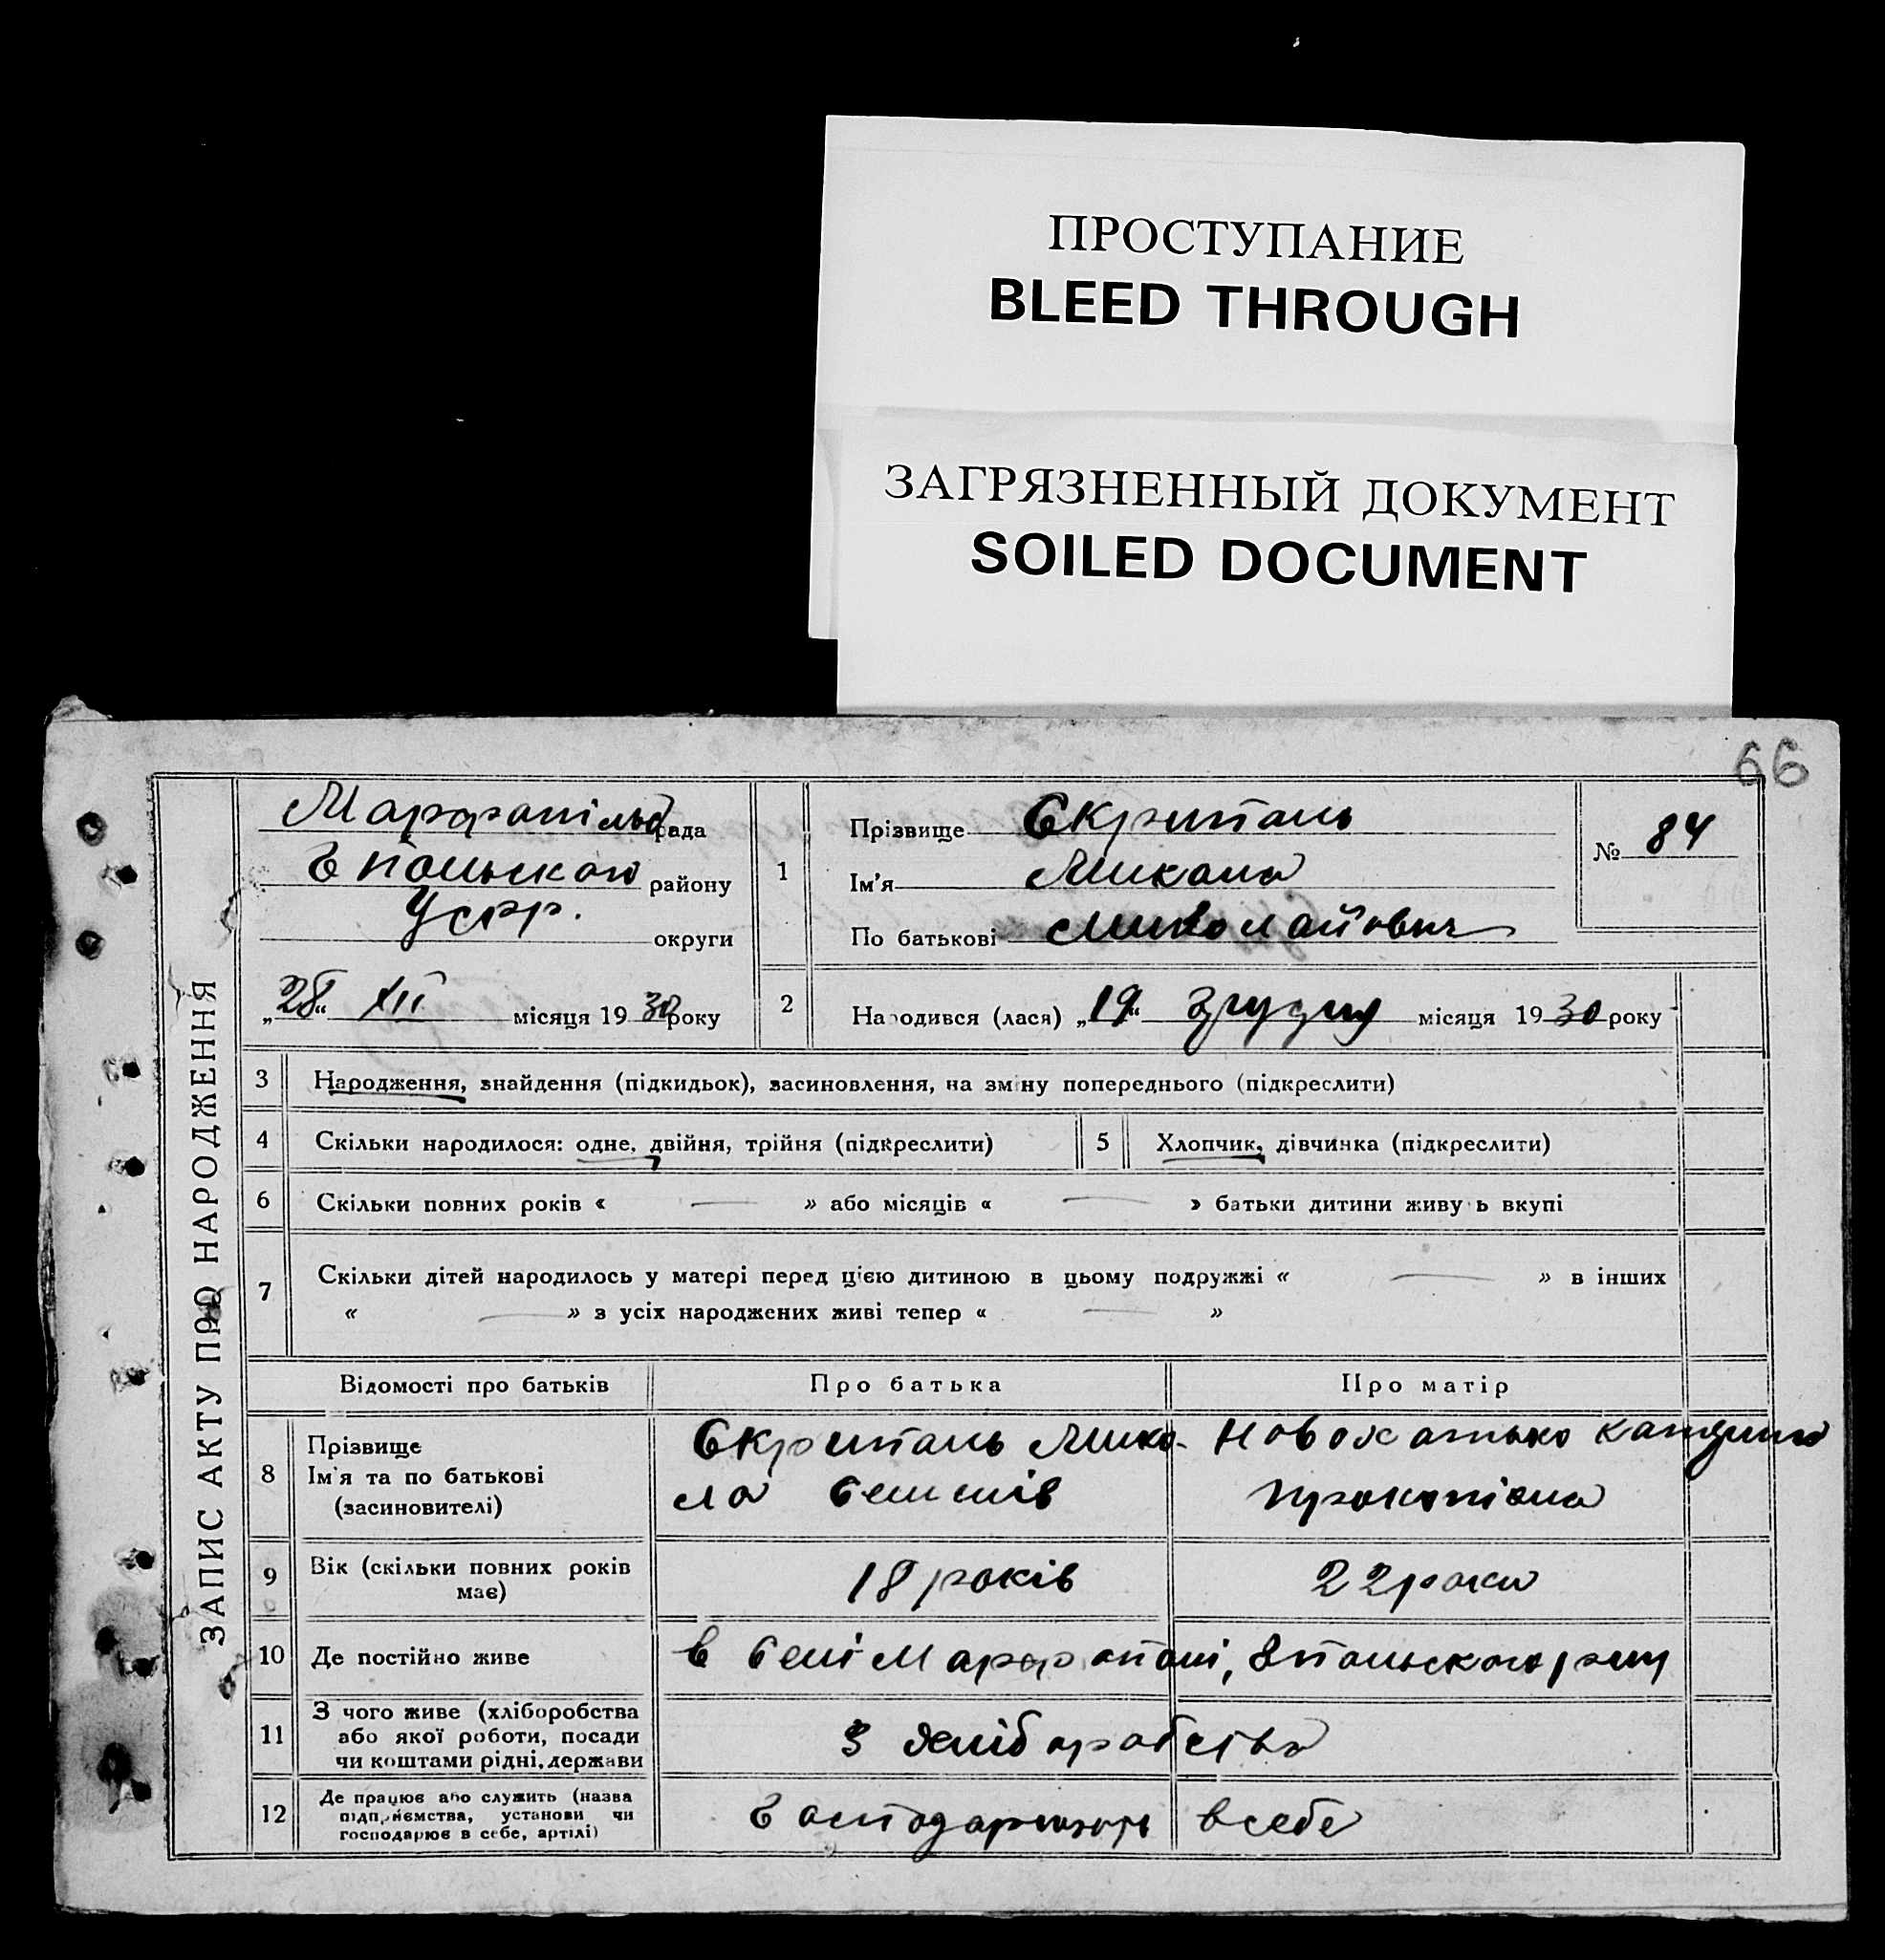 ПРОСТУПАНИЕ
BLEED THROUGH
ЗАГРЯЗНЕННЫЙ ДОКУМЕНТ
SOILED DOCUMENT
66
ЗАПИС АКТУ ПРО НАРОДЖЕННЯ
рада
району
Усрр. округи
„28“ XII місяця 1930 року
1
Прізвище Скрипаль
Ім'я Микола
По батькові Миколайович
№ 84
2
Народився (лася) „19“ грудня місяця 1930 року
3 Народження, знайдення (підкидьок), засиновлення, на зміну попереднього (підкреслити)
4 Скільки народилося: одне, двійня, трійня (підкреслити)
5 Хлопчик, дівчинка (підкреслити)
6 Скільки повних років « — » або місяців « — » батьки дитини живуть вкупі
7 Скільки дітей народилось у матері перед цією дитиною в цьому подружжі « — » в інших
« — » з усіх народжених живі тепер « — »
Відомості про батьків Про батька Про матір
8 Прізвище
Ім'я та по батькові
(засиновителі)
Скрипаль Мико-
ла
Новохатько
Прокопівна
9 Вік (скільки повних років
має)
18 років
22 роки
10 Де постійно живе
в селі
11 З чого живе (хліборобства
або якої роботи, посади
чи коштами рідні, держави
З хліборобства
12 Де працює або служить (назва
підприємства, установи чи
господарює в себе, артілі)
Господарюють в себе